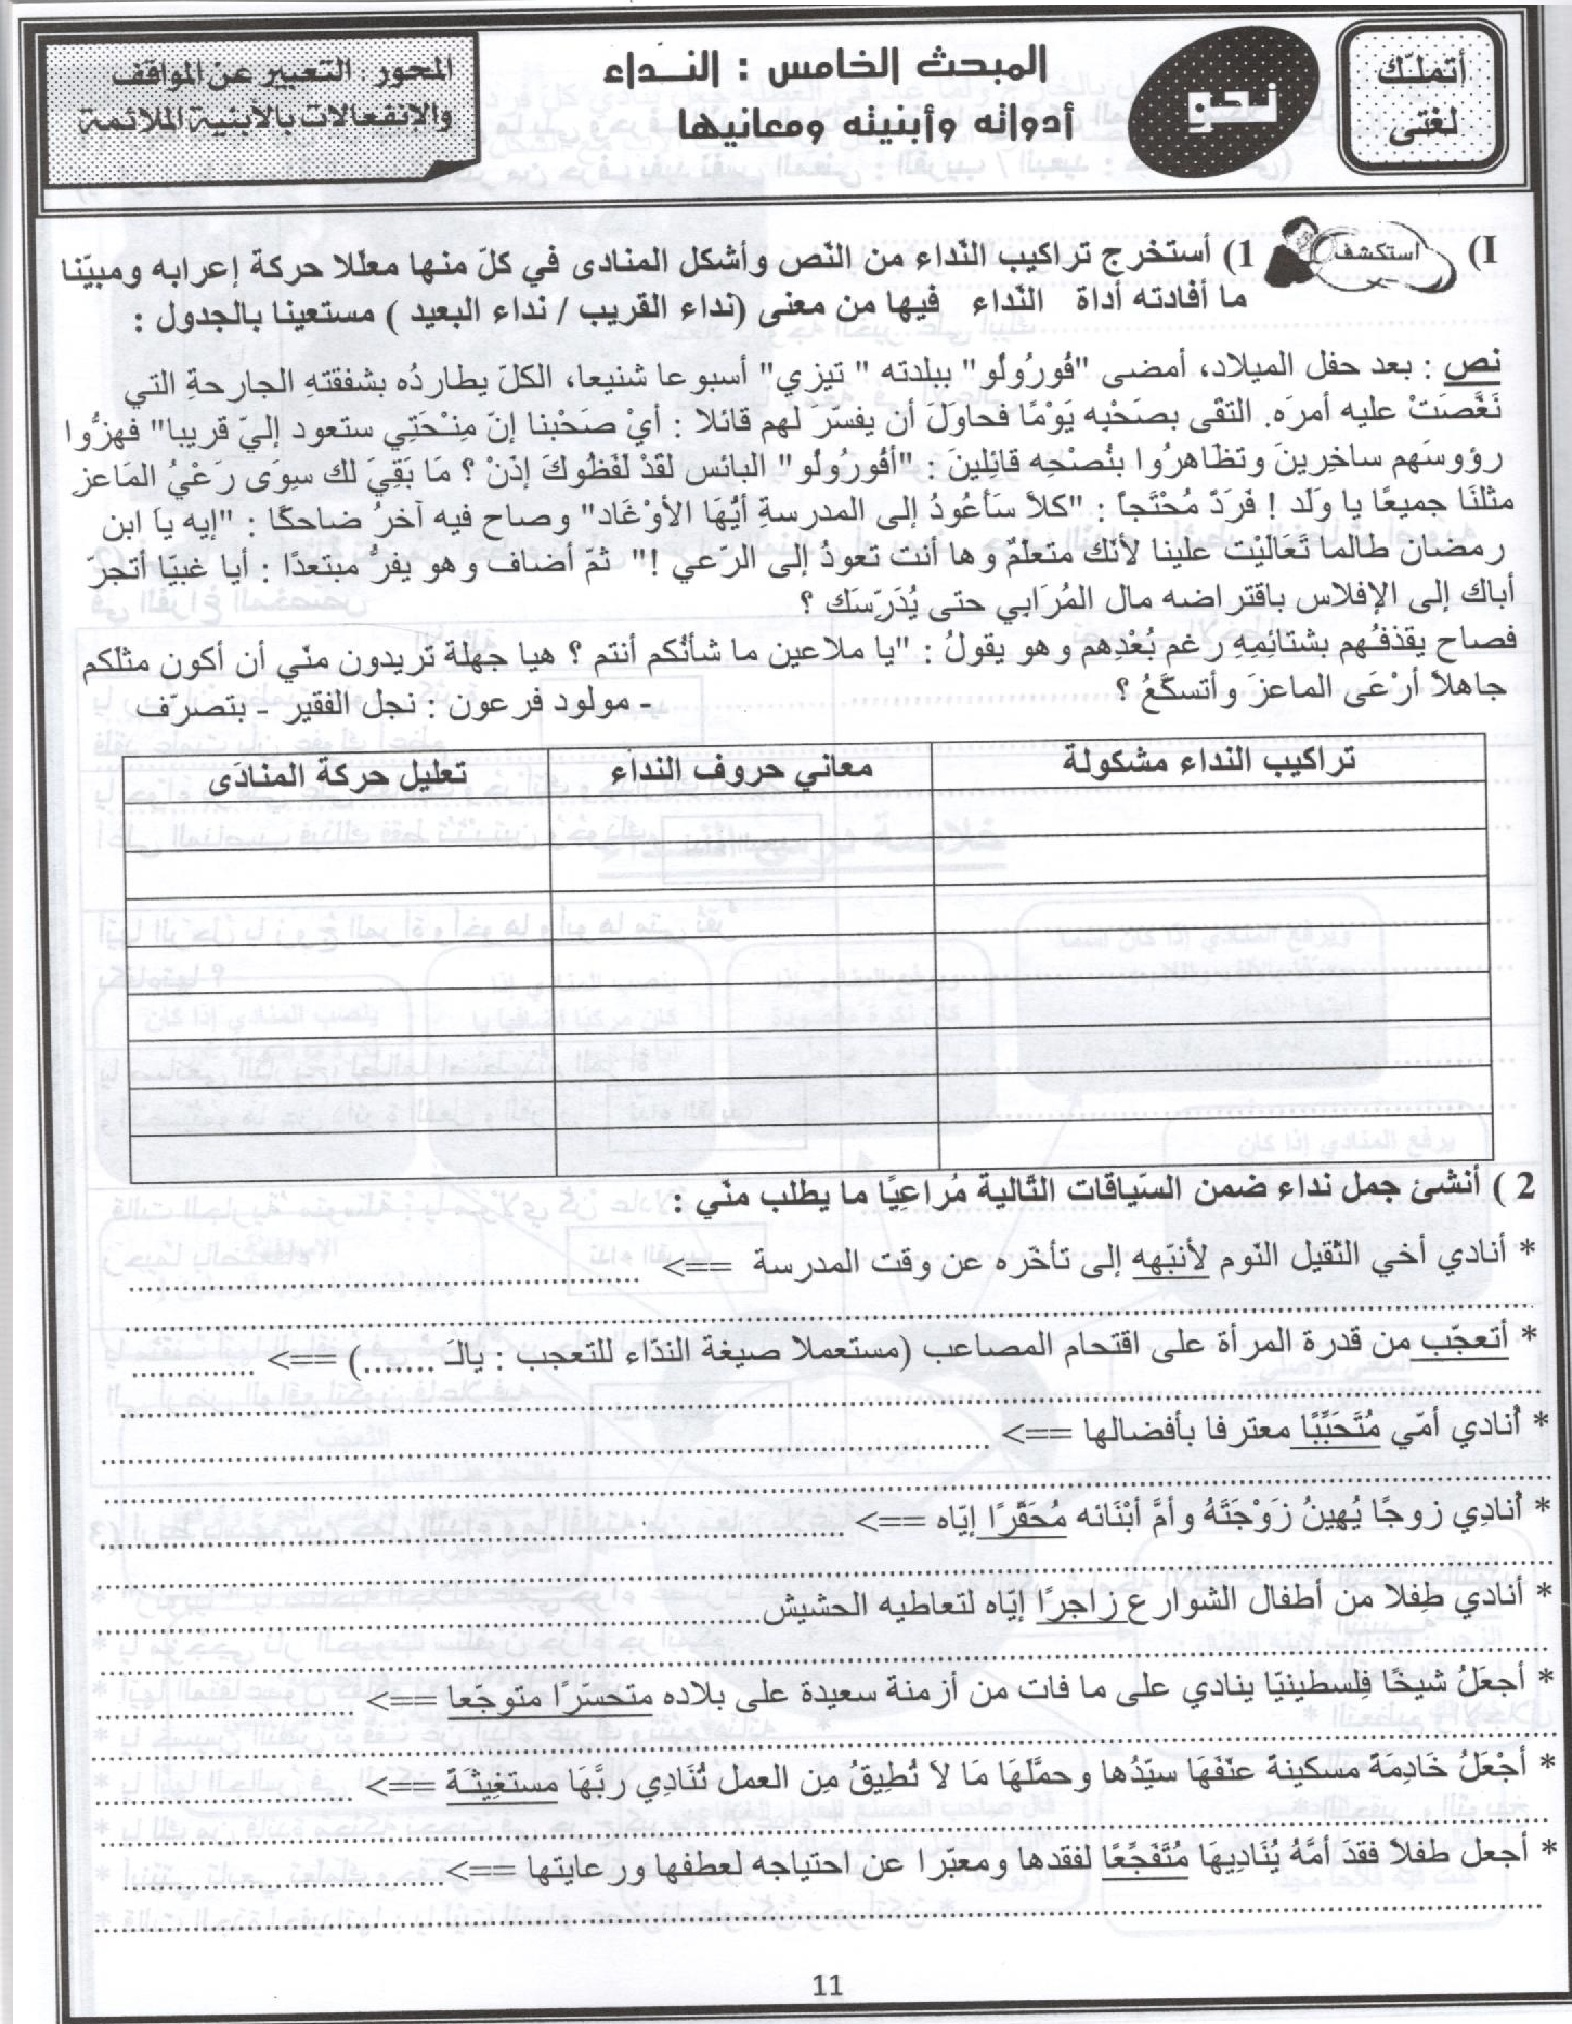 أتملّك
لغتي
نحو
المبحث الخامس : النــداء
أدواته وأبنيته ومعانيها
المحور : التعبير عن المواقف
والانفعالات بالأبنية الملائمة
I)
أستكشف
1) أستخرج تراكيب النّداء من النّص وأشكل المنادى في كلّ منها معلّلا حركة إعرابه ومبيّنا
ما أفادته أداة النّداء فيها من معنى (نداء القريب / نداء البعيد ) مستعينا بالجدول :
نص : بعد حفل الميلاد، أمضى "فُورُولُو" ببلدته " تيزي" أسبوعا شنيعا، الكلّ يطاردُه بشفقتهِ الجارحةِ التي
نَغَّصَتْ عليه أمرَه. التقَى بصَحْبِه يَوْمًا فحاولَ أن يفسّرَ لهم قائلا : أيْ صَحْبنا إنّ مِنْحَتِي ستعود إليّ قريبا" فهزُّوا
رؤوسَهم ساخِرينَ وتظاهرُوا بنُصْحِه قائِلِينَ : "أفُورُولُو" البائس لقَدْ لَفَظُوكَ إذَنْ ؟ مَا بَقِيَ لك سِوَى رَعْيُ المَاعز
مثلنَا جميعًا يا وَلَد ! فَرَدَّ مُحْتَجاً : "كلاّ سَأعُودُ إلى المدرسةِ أيُّهَا الأوْغَاد" وصاح فيه آخرُ ضاحكًا : "إيه يا ابن
رمضان طالما تَعَالَيْت علينا لأنّك متعلّمٌ وها أنت تعودُ إلى الرّعي !" ثمّ أضاف وهو يفرُّ مبتعدًا : أيا غبيّا أتجرّ
أباك إلى الإفلاس باقتراضه مال المُرَابي حتى يُدَرّسَك ؟
فصاح يقذفُهم بشتائِمِهِ رغم بُعْدِهم وهو يقولُ : "يا ملاعين ما شأنُكم أنتم ؟ هيا جهلة تريدون منّي أن أكون مثلكم
جاهلاً أرْعَى الماعزَ وأتسكَّعُ ؟ - مولود فرعون : نجل الفقير - بتصرّف
تراكيب النداء مشكولة معاني حروف النداء تعليل حركة المنادَى
2 ) أنشئ جمل نداء ضمن السّياقات التّالية مُراعِيًا ما يطلب منّي :
* أنادي أخي الثقيل النّوم لأنبّهه إلى تأخّره عن وقت المدرسة ==> ........................
* أتعجّب من قدرة المرأة على اقتحام المصاعب (مستعملا صيغة النّداء للتعجب : يالَـ .......) ==> ............
* أنادي أمّي مُتَحَبِّبًا معترفا بأفضالها ==> ........................
* أنادِي زوجًا يُهينُ زَوْجَتَهُ وأمَّ أبْنَائه مُحَقّرًا إيّاه ==> ........................
* أنادي طِفلا من أطفال الشوارع زاجرًا إيّاه لتعاطيه الحشيش........................
* أجعَلُ شيخًا فِلسطينيّا ينادي على ما فات من أزمنة سعيدة على بلاده متحسّرًا متوجّعا ==> ............
* أجْعَلُ خَادِمَة مسكينة عنّفَهَا سيّدُها وحمَّلَهَا مَا لاَ تُطِيقُ مِن العمل تُنَادِي ربَّهَا مستغِيثَة ==> ............
* أجعل طفلاً فقدَ أمَّهُ يُنَادِيهَا مُتَفَجِّعًا لفقدها ومعبّرا عن احتياجه لعطفها ورعايتها ==>............
11